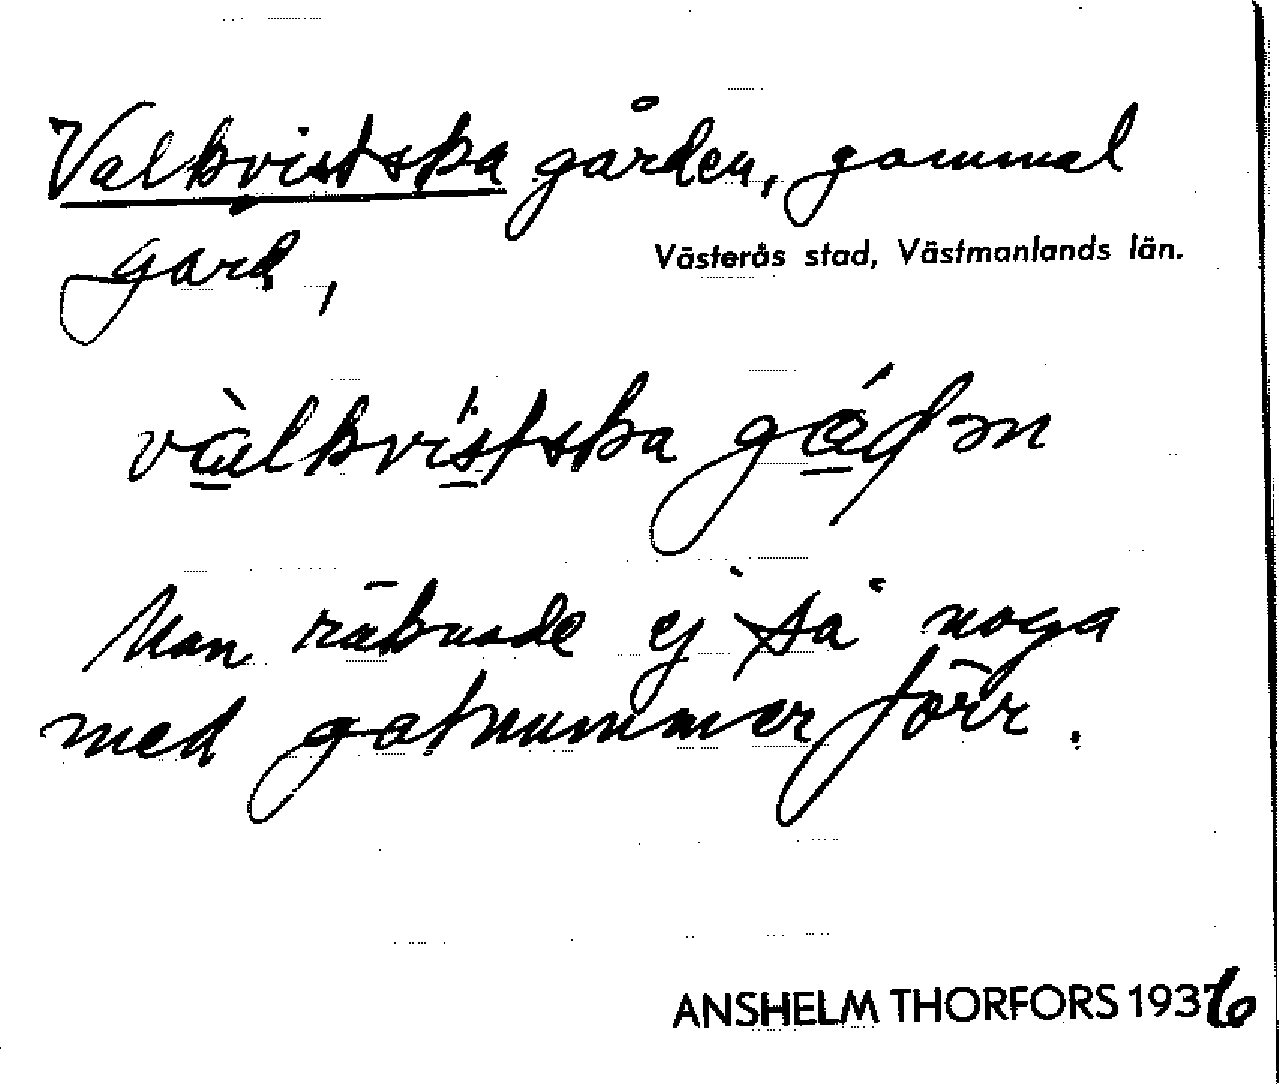 Valkvistska gården, gammal
gård,
Västerås stad, Västmanlands län.
vàlkvístska gáɖən
Man räknade ej så noga
med gatnummer förr.
ANSHELM THORFORS 1936